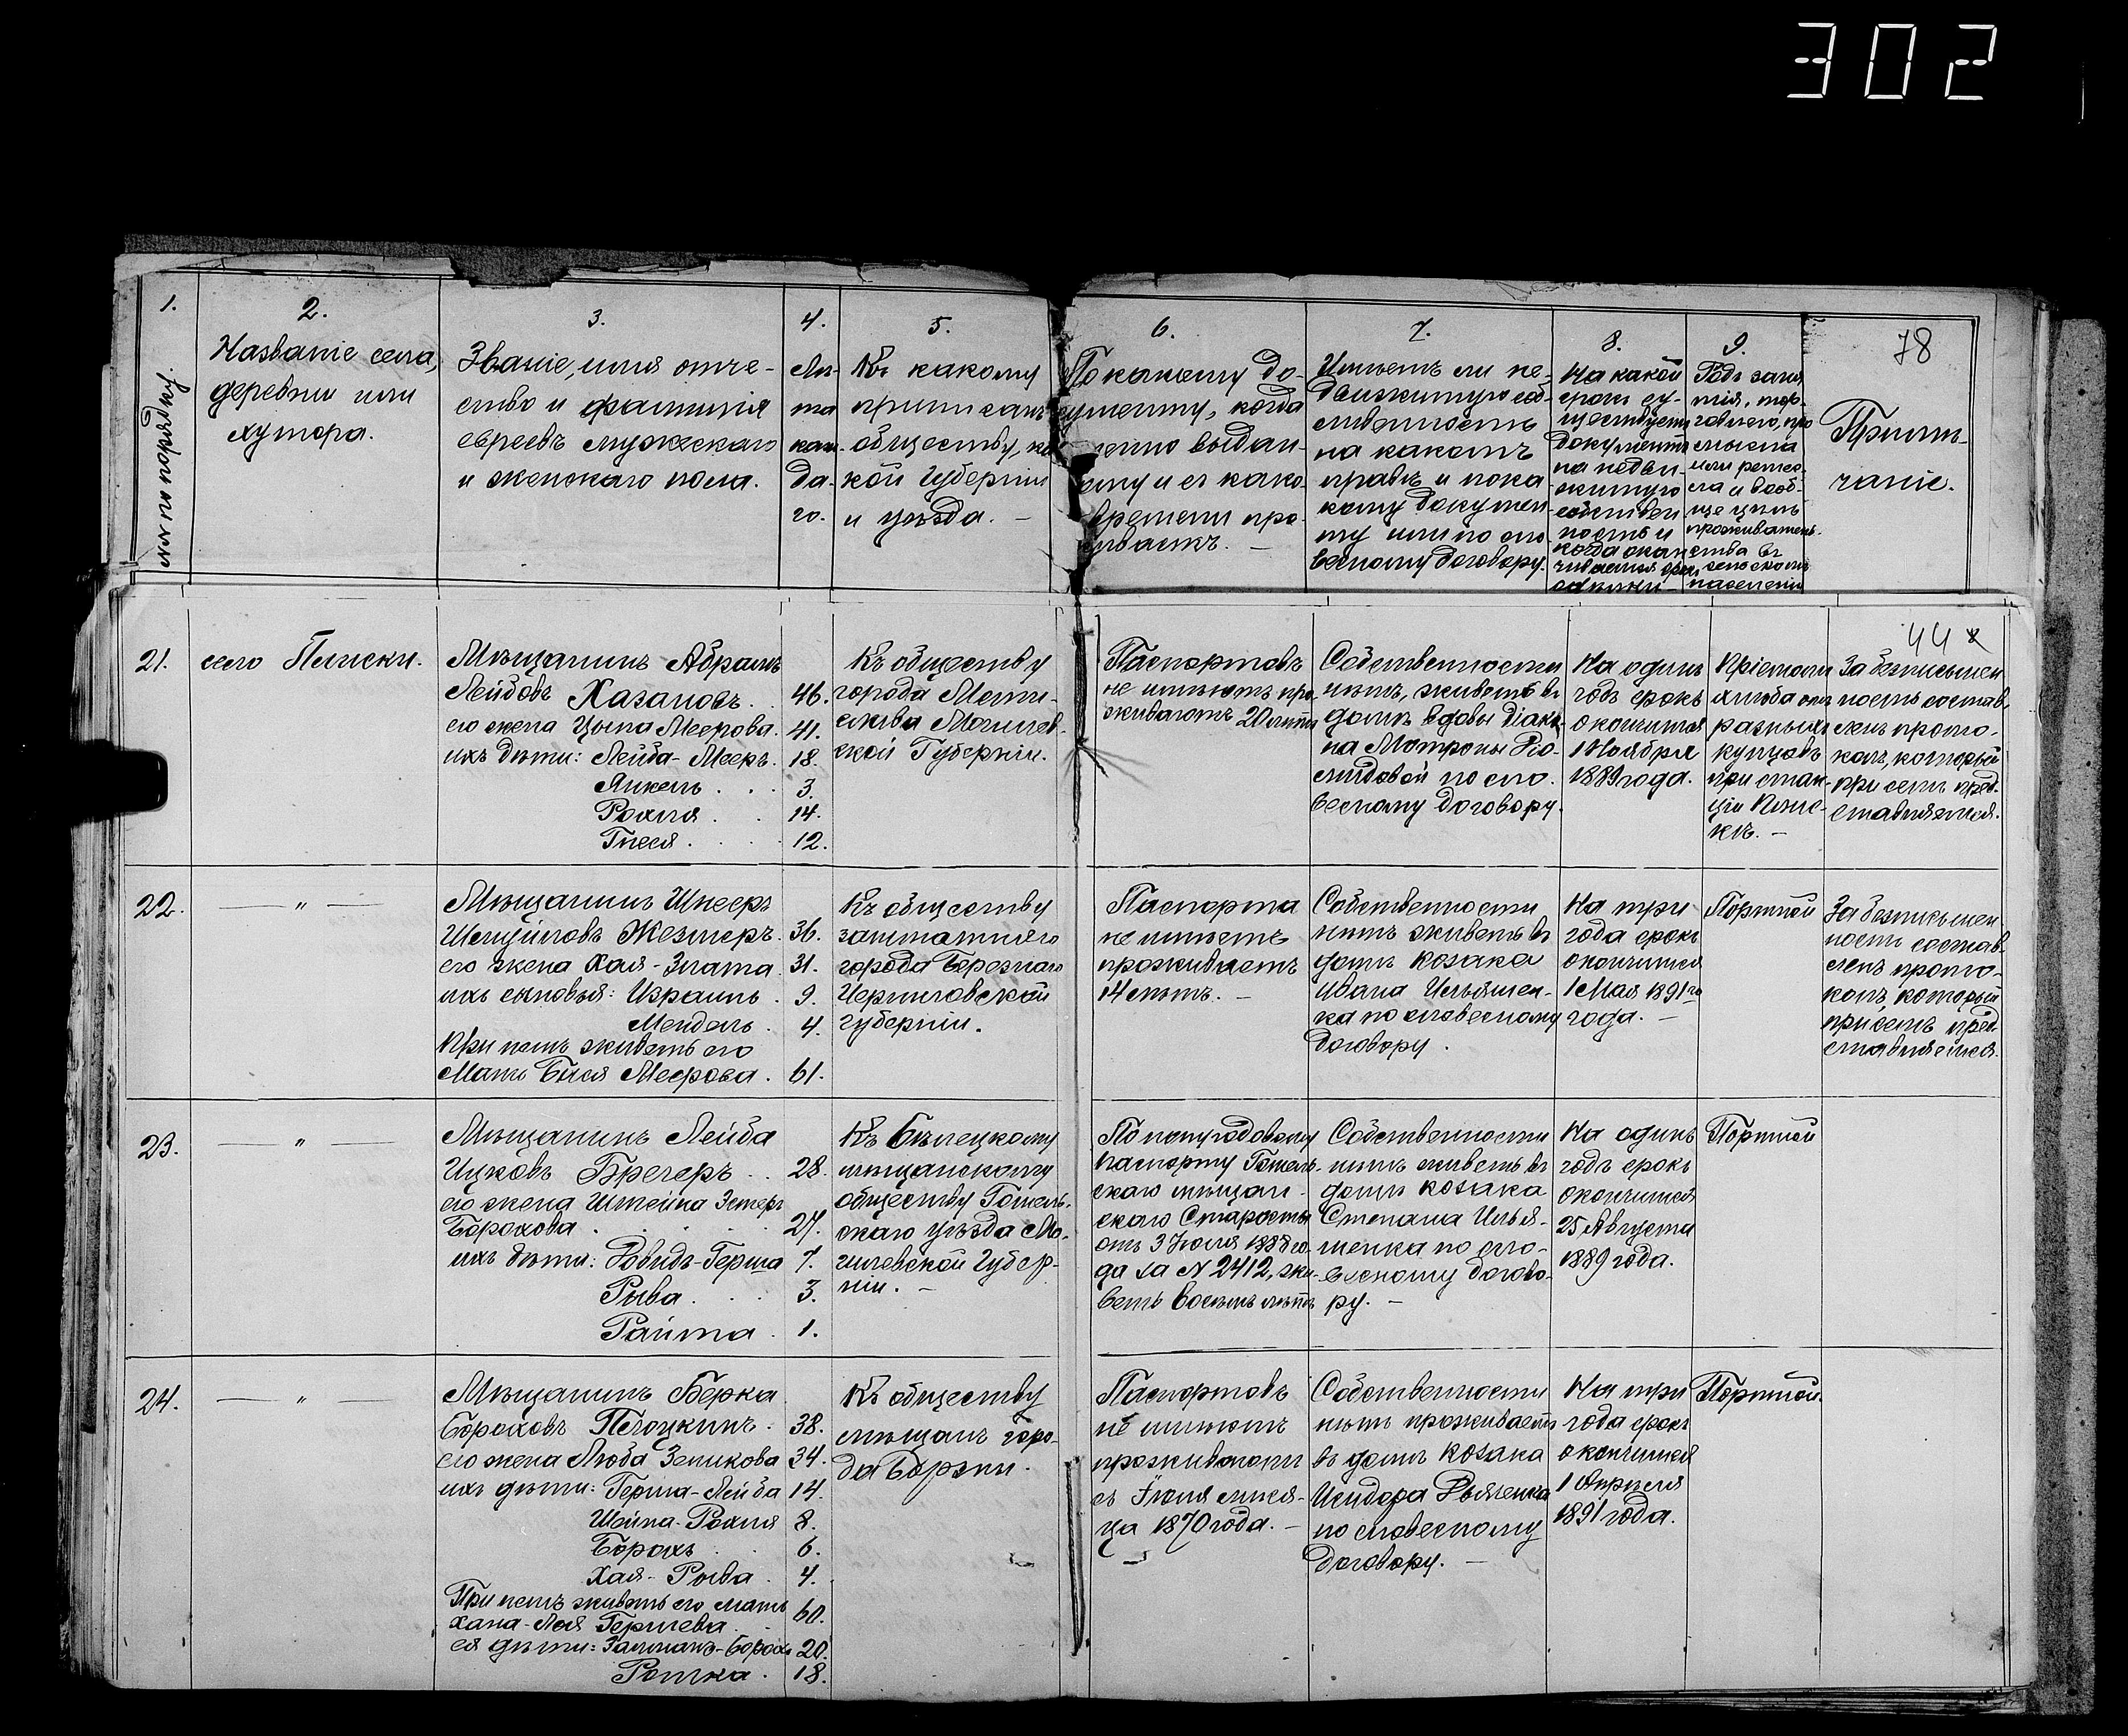 302
78
1.
№№ по порядку.
2.
Названіе села,
деревни или
хутора.
3.
Званіе, имя отче-
ство и фамилія
евреевъ мужескаго
и женскаго пола.
4.
Лѣ-
та
каж-
да-
го.
5.
Къ какому
приписанъ
обществу, ка
кой губерніи
и уѣзда. —
6.
По какому до-
кументу, когда
выдан-
ному и съ како
времени про-
живаетъ. —
7.
Имѣетъ ли не-
движимую соб-
ственность
на какомъ
правѣ и по ка-
кому докумен-
ту или по сло-
весному договору.
8.
На какой
срокъ су-
ществуетъ
документъ
на недви-
жимую
собствен
ность и
когда окан
чивается срокъ
9.
Родъ заня
тія, тор-
говлею, про
мысла
или ремес-
ла и вооб-
ще цѣль
прожительств-
ства въ
сельскомъ
населеніи
Примѣ-
чаніе.
44
21.
село Плиски.
Мѣщанинъ Абрамъ
Лейбовъ Хазановъ . . 46.
его жена Цыпа Меерова. 41.
ихъ дѣти: Лейба-Мееръ. 18.
Янкель . . . 3.
Рохля . . 14.
Гнеся . . . . 12.
Къ обществу
города Мсти-
славля Могилев-
ской Губерніи.
Паспортовъ
не имѣютъ про
живаютъ 20 лѣтъ
Собственности
нѣтъ, живетъ въ
домѣ вдовы діако
на Мотроны
по сло-
весному договору.
На одинъ
годъ срокъ
окончится
1 Ноября
1889 года.
Пріемомъ
хлѣба отъ
разныхъ
купцовъ
при стан-
ціи Плис-
къ. —
За безписьмен
ность состав-
ленъ прото-
колъ, который
при семъ пред-
ставляется.
22.
— " —
Мѣщанинъ Шнееръ
Жезмеръ. 36.
его жена Хая-Злата. 31.
ихъ сыновья: Израиль . 9.
Мендель . 4.
При немъ живетъ его
Мать Бася Меерова . 61.
Къ обществу
заштатнаго
города Березнаго
Черниговской
губерніи.
Паспорта
не имѣетъ
проживаетъ
14 лѣтъ. —
Собственности
нѣтъ живетъ въ
домѣ козака
Ивана Ильяшен-
ка по словесному
договору.
На три
года срокъ
окончится
1 Мая 1891 го
года. —
Портной
За безписьмен
ность состав-
ленъ прото-
колъ, который
при семъ пред-
ставляется.
23.
— " —
Мѣщанинъ Лейба
Ицковъ Брегеръ . . 28.
его жена Штейна Эстеръ
Борохова . . . . 27.
ихъ дѣти: Довидъ-Герша 7.
Рыва . . . 3.
Райта . 1.
Къ Бѣлецкому
мѣщанскому
обществу Гомель-
скаго уѣзда Мо-
гилевской Губер-
ніи. —
По полугодовому
паспорту Гомель-
скаго мѣщан-
скаго Старосты
отъ 3 Іюля 1888 го-
да за № 2412, жи-
ветъ восемь лѣтъ
Собственности
нѣтъ живетъ въ
домѣ козака
Степана Илья-
шенка по сло-
весному догово-
ру. —
На одинъ
годъ срокъ
окончится
25 Августа
1889 года.
Портной
24.
— " —
Мѣщанинъ Берка
Бороховъ Пелоцкинъ . 38.
его жена Люба Зеликова 34.
ихъ дѣти: Герша-Лейба 14.
Шейна-Рохля 8.
Борохъ . . 6.
Хая-Рыва . 4.
При немъ живетъ его мать
Хана-Лея Гершева . . 60.
ея дѣти: Залманъ-Борохъ 20.
Ротка . 18.
Къ обществу
мѣщанъ горо-
да Борзны.
Паспортовъ
не имѣютъ
проживаютъ
съ Іюня мѣся-
ца 1870 года. —
Собственности
нѣтъ проживаетъ
въ домѣ козака
Исидора
по словесному
договору. —
На три
года срокъ
окончится
1 Апрѣля
1891 года.
Портной.